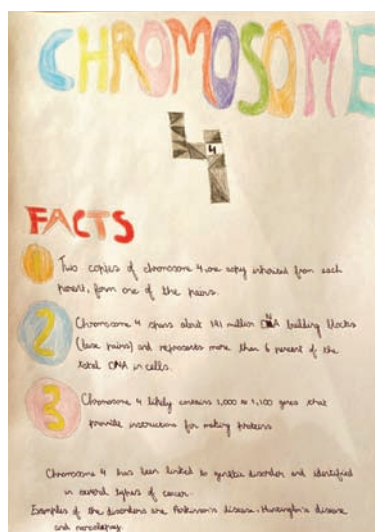 CHROMOSOME
4
4
FACTS
1 Two copies of chromosome 4, one copy inherited from each
parent, form one of the pairs.
2 Chromosome 4 spans about 191 million DNA building blocks
(base pairs) and represents more than 6 percent of the
total DNA in cells.
3 Chromosome 4 likely contains 1,000 to 1,100 genes that
provide instructions for making proteins
Chromosome 4 has been linked to genetic disorder and identified
in several types of cancer.
Examples of the disorders are Parkinson's disease, Huntington's disease
and narcolepsy.